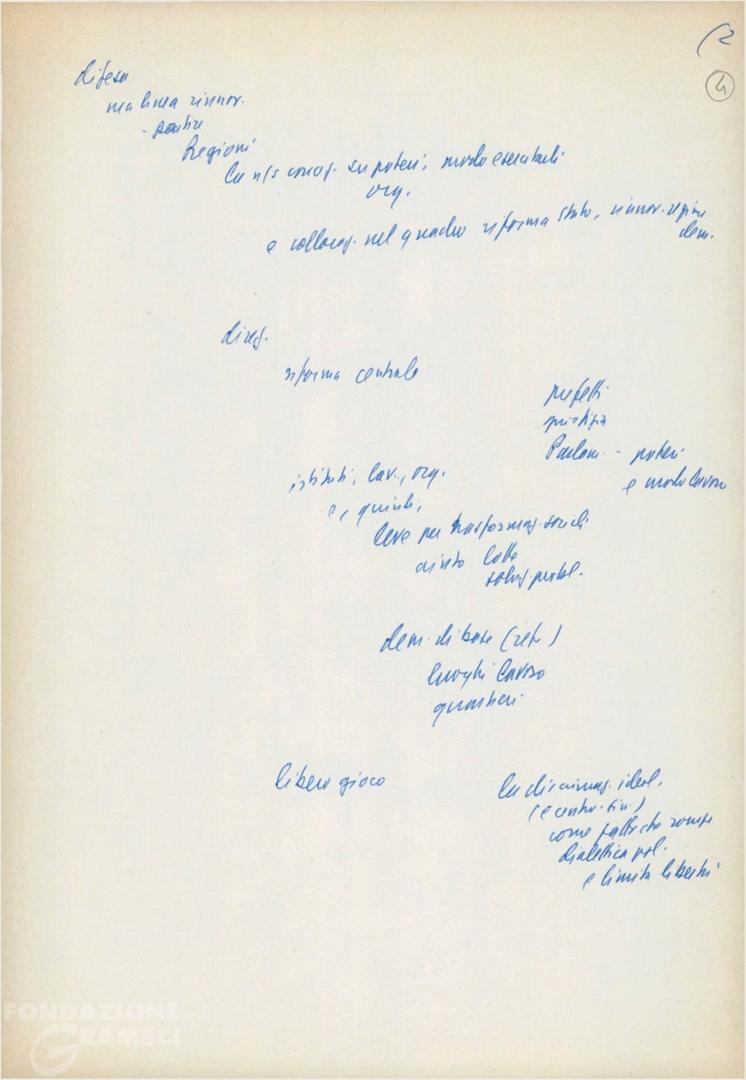 (2
4
difesa
ma linea rinnov.
- partire
Regioni
la ns/ concez. su poteri, modo esercitarli
org.
e collocaz. nel quadro riforma stato, rinnov. regime
dem.
direz.
riforma centrale
prefetti
giustizia
Parlam. - poteri
e modo lavoro
istituti, lav., org.
e, quindi,
leve per trasformaz. sociali
aiuto lotte
soluz. probl.
dem. di base (rete)
luoghi lavoro
quartieri
libero gioco
la discriminaz. ideol.
(e centro-sin.)
come fatto che rompe
dialettica pol.
e limita libertà
FONDAZIONE
GRAMSCI